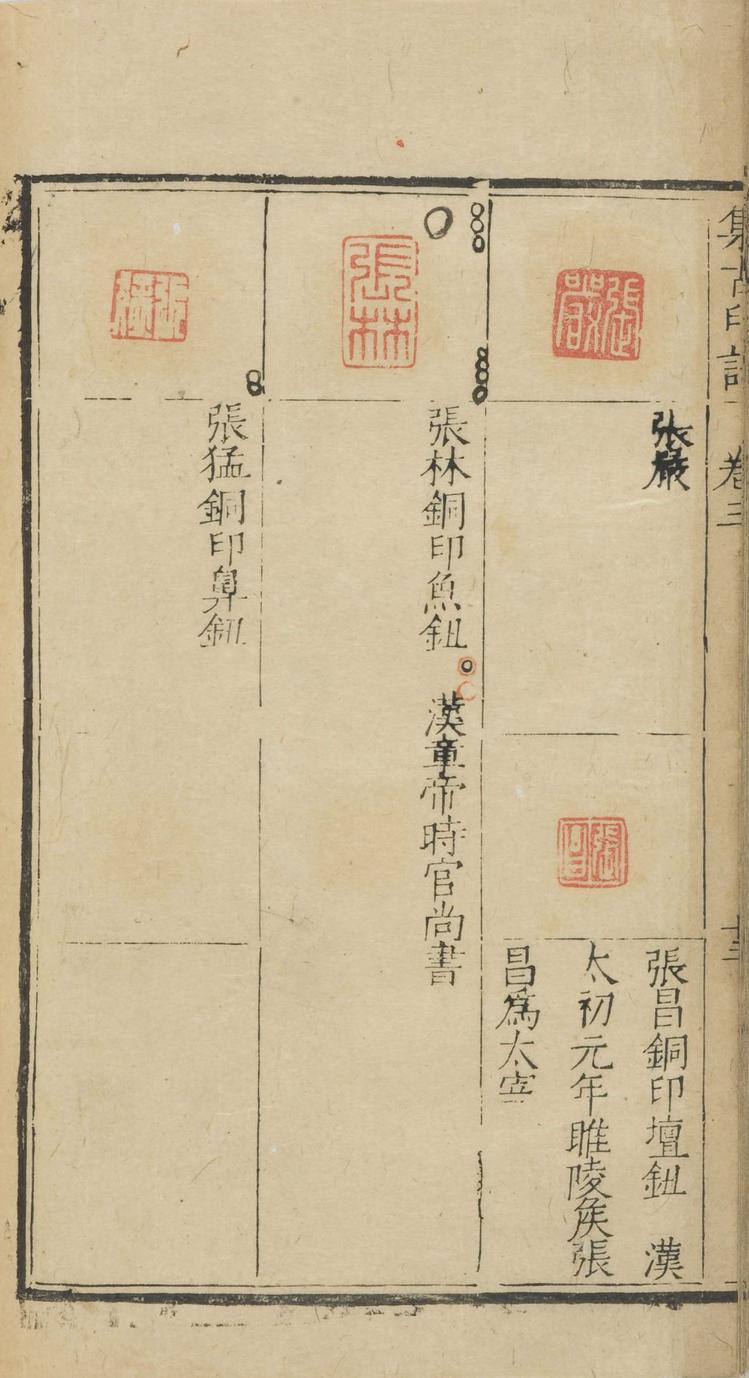 集古印譜 卷三
十三
張嚴
張嚴
張昌
張昌銅印壇鈕 漢
太初元年睢陵矦張
昌爲太宰
張林
張林銅印魚鈕 漢章帝時官尚書
張猛
張猛銅印鼻鈕